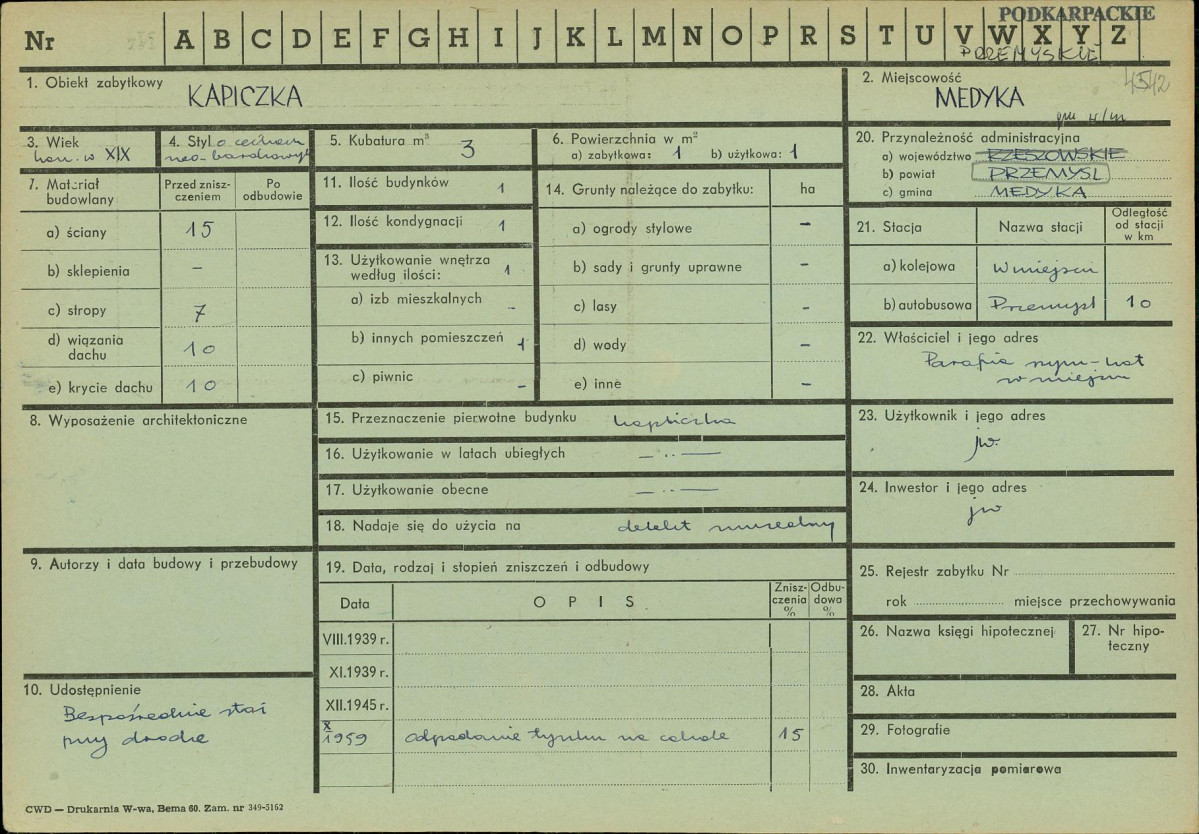 PODKARPACKIE
Nr A B C D E F G H I J K L M N O P R S T U V W X Y Z
PRZEMYSKIE
1. Obiekt zabytkowy
KAPICZKA
2. Miejscowość
4542
MEDYKA
3. Wiek
kon. w XIX
4. Styl o cechach
neo-barokowych
5. Kubatura m³ 3
6. Powierzchnia w m²
a) zabytkowa: 1 b) użytkowa: 1
20. Przynależność administracyjna
a) województwo RZESZOWSKIE
b) powiat PRZEMYŚL
c) gmina MEDYKA
7. Materiał budowlany
Przed zniszczeniem
Po odbudowie
a) ściany 15
b) sklepienia –
c) stropy 7
d) wiązania dachu 10
e) krycie dachu 10
11. Ilość budynków 1
12. Ilość kondygnacji 1
13. Użytkowanie wnętrza według ilości: 1
a) izb mieszkalnych -
b) innych pomieszczeń 1
c) piwnic -
14. Grunty należące do zabytku: ha
a) ogrody stylowe –
b) sady i grunty uprawne –
c) lasy -
d) wody –
e) inne –
21. Stacja Nazwa stacji Odległość od stacji w km
a) kolejowa W miejscu
b) autobusowa Przemyśl 10
22. Właściciel i jego adres
Parafia rzym-kat
w miejscu
8. Wyposażenie architektoniczne
15. Przeznaczenie pierwotne budynku kapliczka
16. Użytkowanie w latach ubiegłych — ·· —
17. Użytkowanie obecne — ·· —
18. Nadaje się do użycia na obiekt muzealny
23. Użytkownik i jego adres
jw.
24. Inwestor i jego adres
jw
9. Autorzy i data budowy i przebudowy
19. Data, rodzaj i stopień zniszczeń i odbudowy
Data OPIS Zniszczenia % Odbudowa %
VIII.1939 r.
XI.1939 r.
XII.1945 r.
X
1959 odpadanie tynku na cokole 15
25. Rejestr zabytku Nr
rok miejsce przechowywania
26. Nazwa księgi hipotecznej
27. Nr hipoteczny
10. Udostępnienie
Bezpośrednie stoi
przy drodze
28. Akta
29. Fotografie
30. Inwentaryzacja pomiarowa
CWD — Drukarnia W-wa, Bema 60. Zam. nr 349-5162